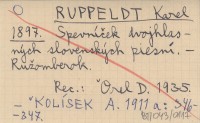 RUPPELDT Karel
1897. Spevníček dvojhlas-
ných slovenských piesní. -
Ružomberok.
Rec.: Orel D. 1935.
- KOLÍSEK A. 1911 a: 346-
-347.